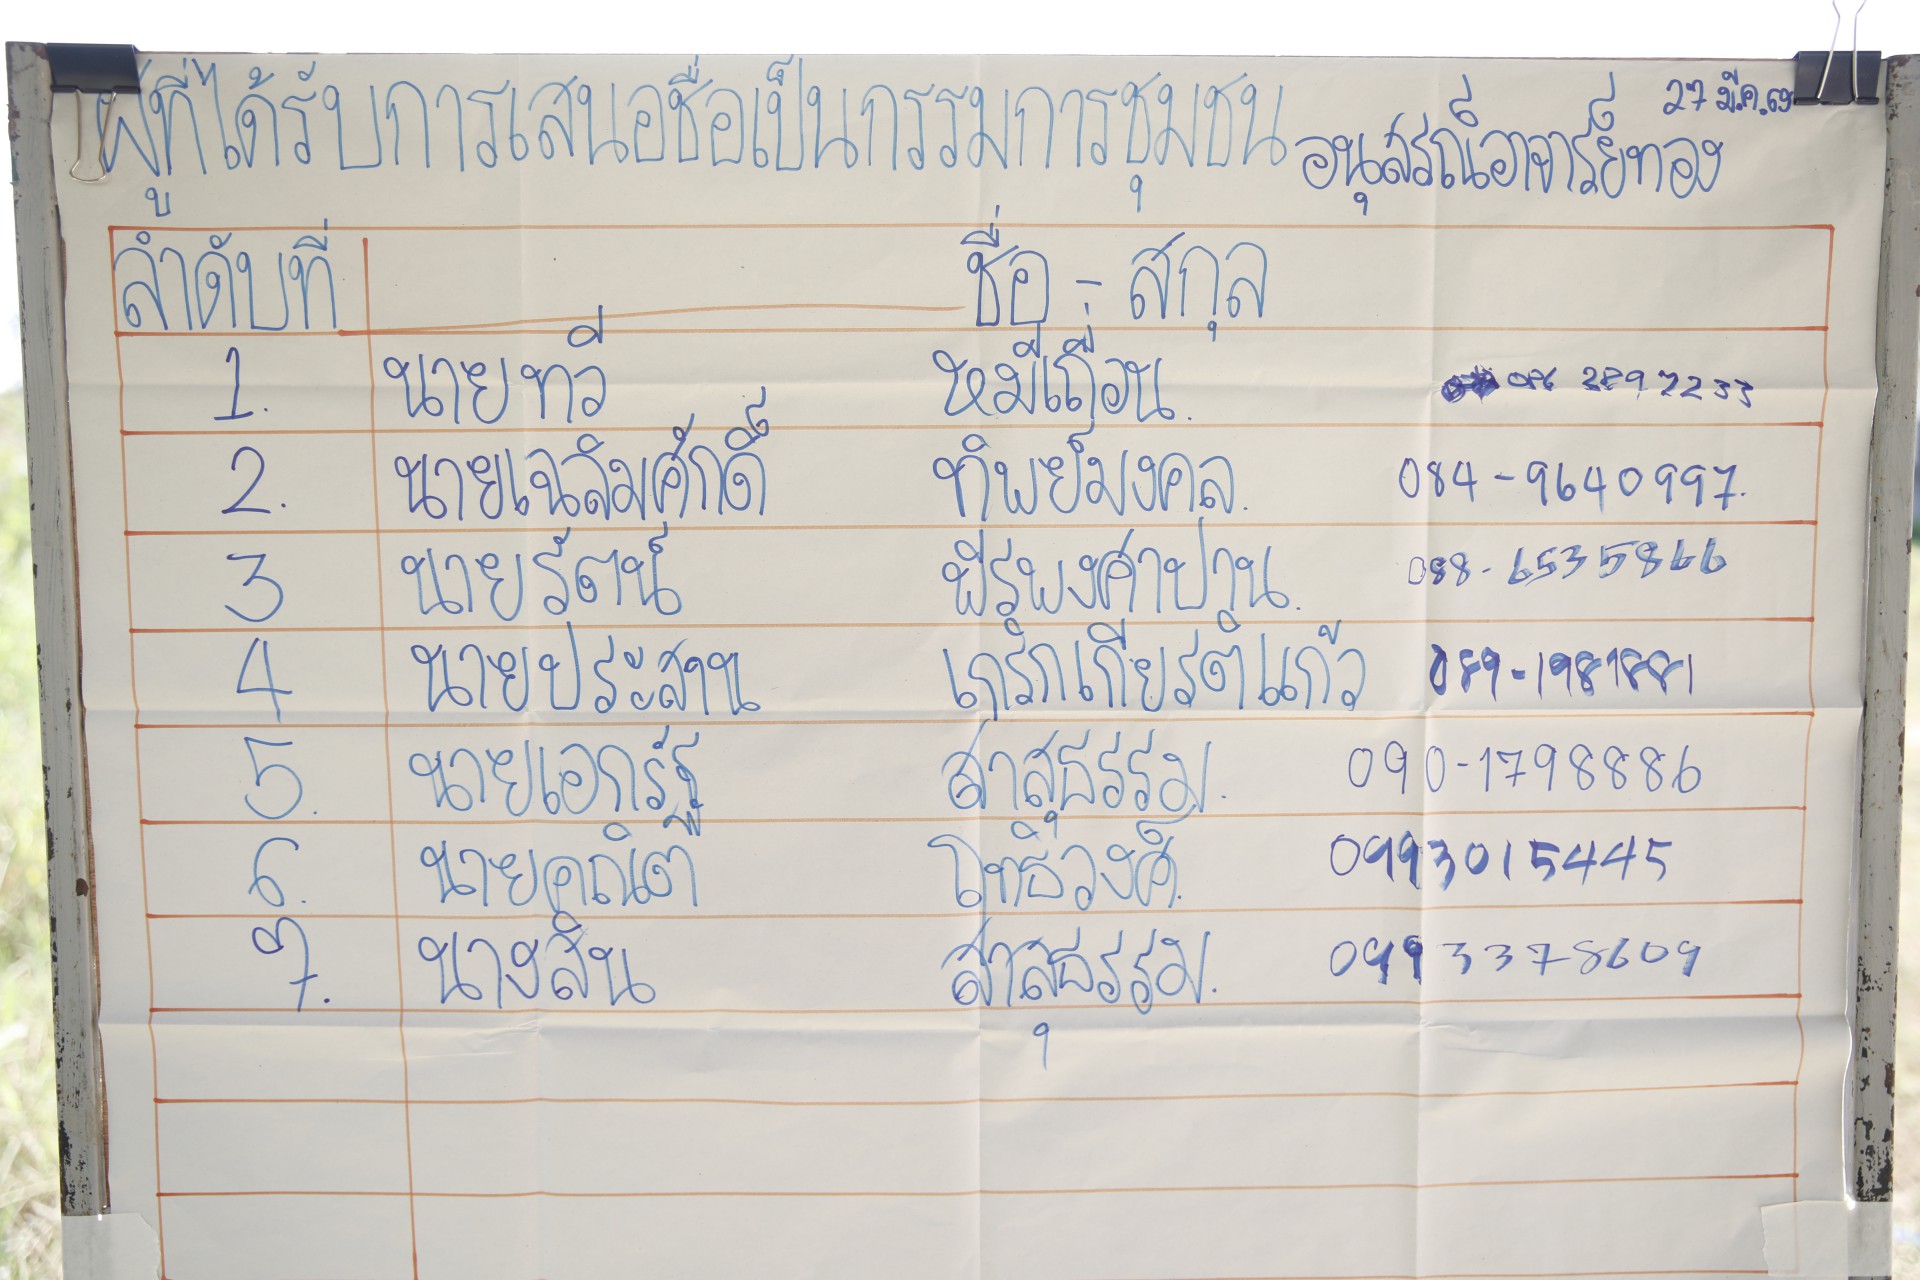 27 มี.ค.69
ผู้ที่ได้รับการเสนอชื่อเป็นกรรมการชุมชน อนุสรณ์อาจารย์ทอง
ลำดับที่ ชื่อ - สกุล
1. นายทวี หมีเถื่อน. 086 2897233
2. นายเฉลิมศักดิ์ ทิพย์มงคล. 084-9640997.
3 นายรัตน์ พีรพงศาปาน. 088-6535866
4 นายประสาน เกริกเกียรติแก้ว 089-1981881
5. นายเอกรัฐ ศาสุธรรม. 090-1798886
6. นายคณิต โพธิวงศ์. 0993015445
7. นางสิน ศาสุธรรม. 0993378609